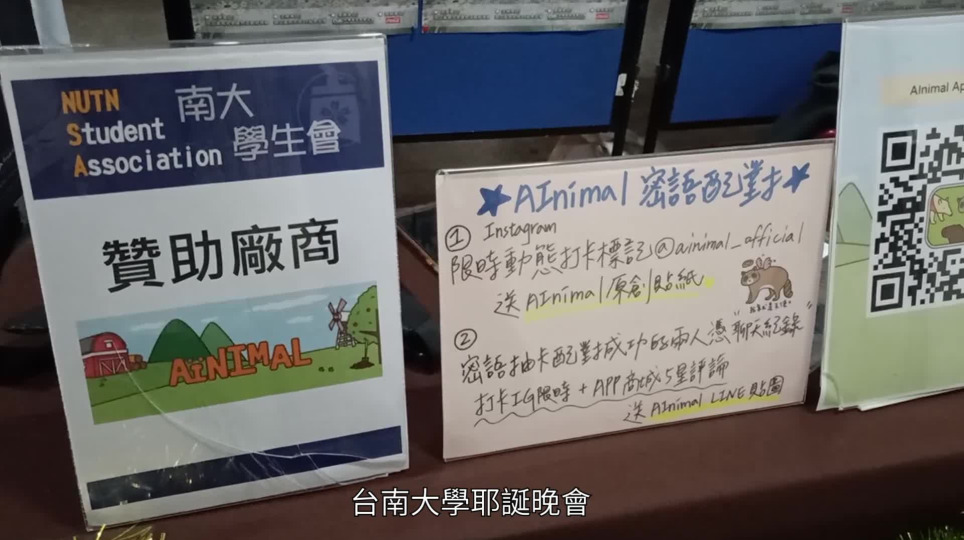 NUTN
Student
Association
南大
學生會
贊助廠商
AiNIMAL
★AInimal 密語配對★
① Instagram
限時動態打卡標記@ainimal_official
送 AInimal 原創貼紙
②
密語抽卡配對成功的兩人憑聊天紀錄
打卡IG限時 + APP商城5星評論
送 AInimal LINE貼圖
AInimal Ap
台南大學耶誕晚會